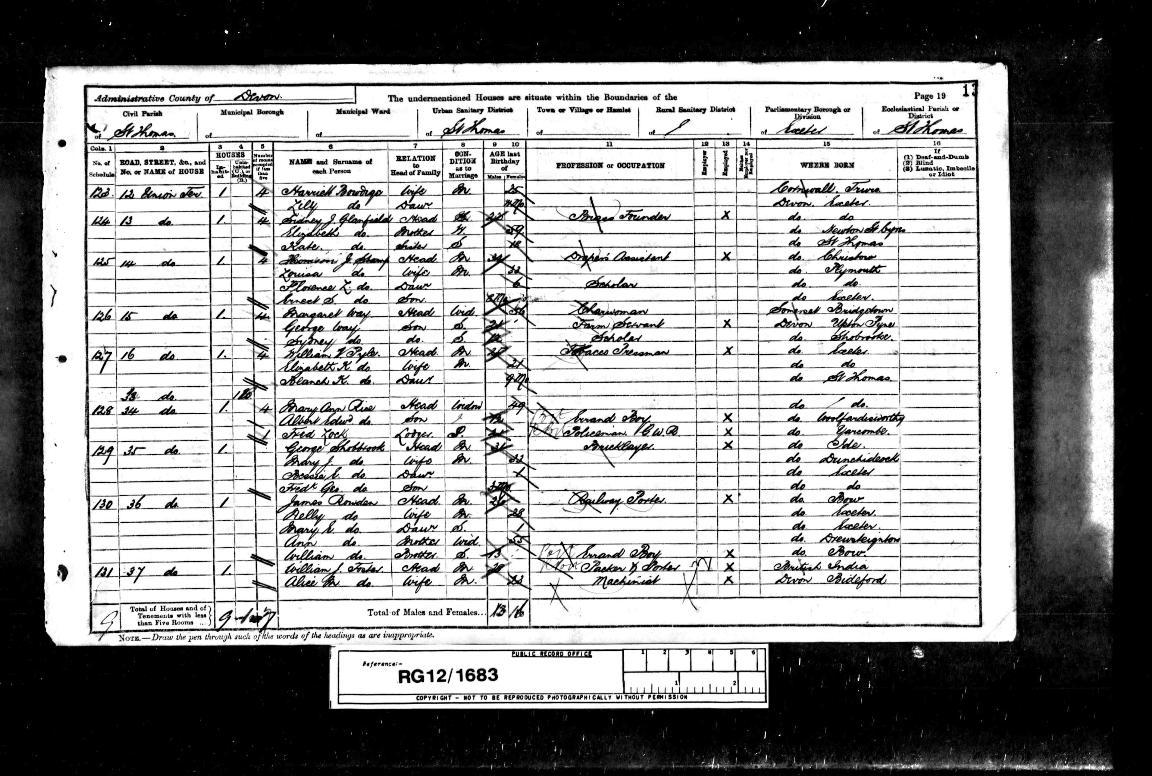 13
Administrative County of Devon. The undermentioned Houses are situate within the Boundaries of the Page 19
Civil Parish Municipal Borough Municipal Ward Urban Sanitary District Town or Village or Hamlet Rural Sanitary District Parliamentary Borough or Division Ecclesiastical Parish or District
of St Thomas of of of St Thomas of of of Exeter of St Thomas
Cols. 1 2 3 4 5 6 7 8 9 10 11 12 13 14 15 16
No. of Schedule ROAD, STREET, &c., and No. or NAME of HOUSE HOUSES Inhabited NAME and Surname of each Person RELATION to Head of Family CONDITION as to Marriage AGE last Birthday of Males Females PROFESSION or OCCUPATION Employer Employed WHERE BORN If (1) Deaf-and-Dumb (2) Blind (3) Lunatic, Imbecile or Idiot
123 12 Union Ter 1 4 Harriett Wife M 25 Cornwall
Lily do Daur Devon Exeter
124 13 do. 1. 4 Sidney J. Glanfield Head Brass Founder X do do
Elizabeth do. Mother W 59 do Newton St Cyres
Kate do Sister S 18 do St Thomas
125 14 do 1. 4 Head M Drapers Assistant X do
Louisa do Wife M. 33 do Plymouth
Florence L. do Daur 6 Scholar do do.
Ernest S. do Son do Exeter.
126 15 do 1. 4 Margaret Way Head Wid 56 Charwoman Somerset
George Way Son S. 21 Farm Servant X Devon Upton Pyne
Sydney do do. S. 12 Scholar do Shobrooke
127 16 do 1. 4 William Head M Tobacco Pressman X do Exeter
Elizabeth K. do Wife M. 21 do do
Blanch K. do Daur 9 Mo do St Thomas
33 do.
128 34 do 1. 4 Mary Ann Rice Head Widow 49 do do.
Albert Edwd do. Son Errand Boy X do Woolfardisworthy
Fred Lock Lodger S. Policeman G.W.R X do
129 35 do 1. George Shobbrook Head M 31 Bricklayer X do Ide.
Mary J. do Wife M 33 do Dunchideock
Bessie E. do Daur 1 do Exeter
Fredk Geo do Son 3 Mo do do
130 36 do 1 James Rowden Head M Railway Porter X do Bow
do Wife M. 28 do Exeter
Mary E. do Daur S. 1 do Exeter.
Ann do Mother Wid. 55 do Drewsteignton
William do. Brother S 13 Errand Boy X do. Bow.
131 37 do 1. William J. Head M Packer & Porter X British India
Alice M. do Wife M. 23 Machinist X Devon Bideford
9 Total of Houses and of Tenements with less than Five Rooms 9 Total of Males and Females... 13 16
NOTE.—Draw the pen through such of the words of the headings as are inappropriate.
PUBLIC RECORD OFFICE
Reference:-
RG12/1683
1 2 3 4 5 6
1 2
COPYRIGHT - NOT TO BE REPRODUCED PHOTOGRAPHICALLY WITHOUT PERMISSION